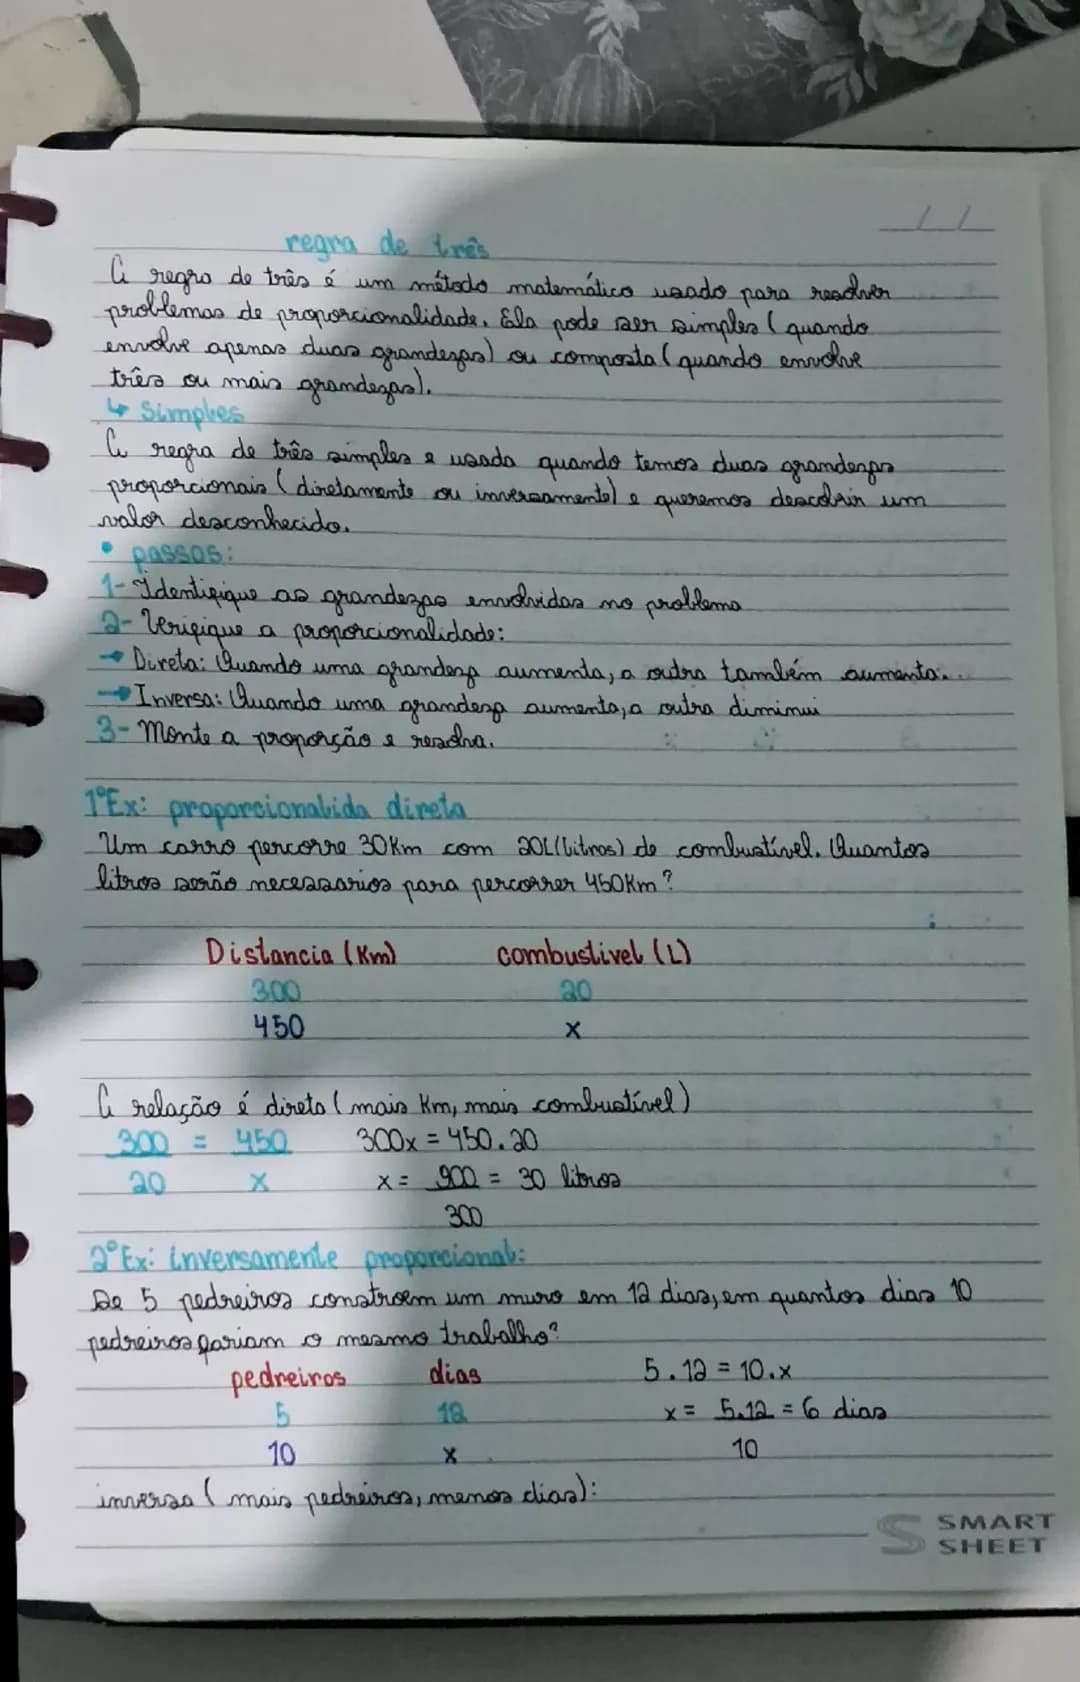 regra de três
A regra de três é um método matemático usado para resolver
problemas de proporcionalidade. Ela pode ser simples (quando
envolve apenas duas grandezas) ou composta (quando envolve
três ou mais grandezas).
↳ Simples
A regra de três simples e usada quando temos duas grandezas
proporcionais (diretamente ou inversamente) e queremos descobrir um
valor desconhecido.
• passos:
1- Identifique as grandezas envolvidas no problema
2- Verifique a proporcionalidade:
→ Direta: Quando uma grandeza aumenta, a outra também aumenta.
→ Inversa: Quando uma grandeza aumenta, a outra diminui
3- Monte a proporção e resolva.
1ºEx: proporcionalida direta
Um carro percorre 30Km com 20L(litros) de combustível. Quantos
litros serão necessarios para percorrer 450Km?
Distancia (Km) combustivel (L)
300 20
450 x
A relação é direta (mais Km, mais combustível)
300 = 450 300x = 450.20
20 x x = 900 = 30 litros
300
2ºEx: inversamente proporcional:
Se 5 pedreiros constroem um muro em 12 dias, em quantos dias 10
pedreiros fariam o mesmo trabalho?
pedreiros dias 5.12 = 10.x
5 12 x = 5.12 = 6 dias
10 x 10
inversa (mais pedreiros, menos dias):
SMART
SHEET